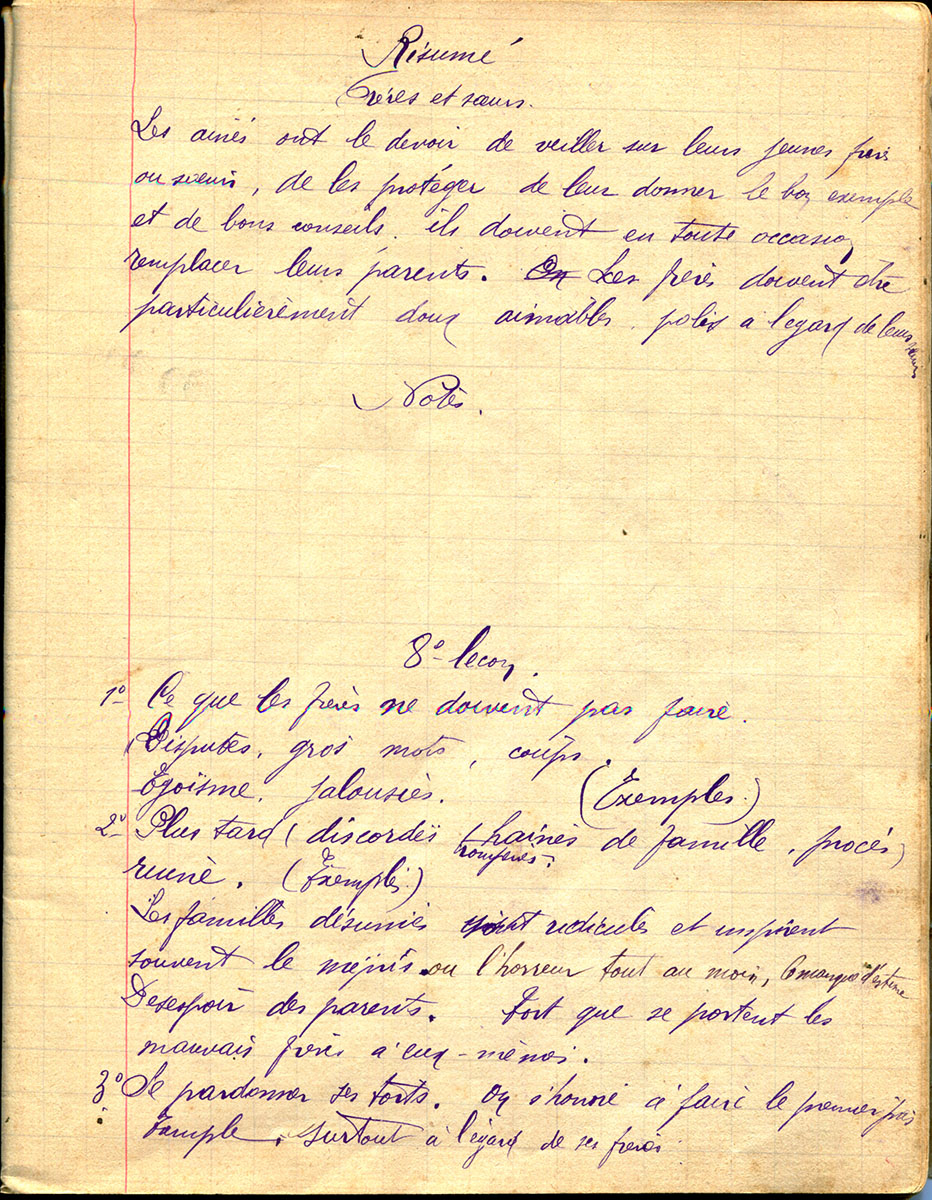 Résumé
Frères et sœurs.
Les ainés ont le devoir de veiller sur leurs jeunes frères
ou sœurs, de les protéger de leur donner le bon exemple
et de bons conseils. ils doivent en toute occasion
remplacer leurs parents. On Les frères doivent être
particulièrement doux aimables, polis à l'egard de leurs sœurs
Notes.
8º leçon.
1º Ce que les frères ne doivent pas faire.
Disputes, gros mots, coups.
Egoïsme, jalousies. (Exemples.)
2º Plus tard (discordes, haines de famille, procès)
ruine. (Exemples.)
Les familles désunies sont ridicules et inspirent
souvent le mépris ou l'horreur tout au moins, le manque d'estime
Desespoir des parents. Tort que se portent les
mauvais frères à eux-mêmes.
3º Se pardonner ses torts. On s'honore à faire le premier pas
Exemple, surtout à l'égard de ses frères